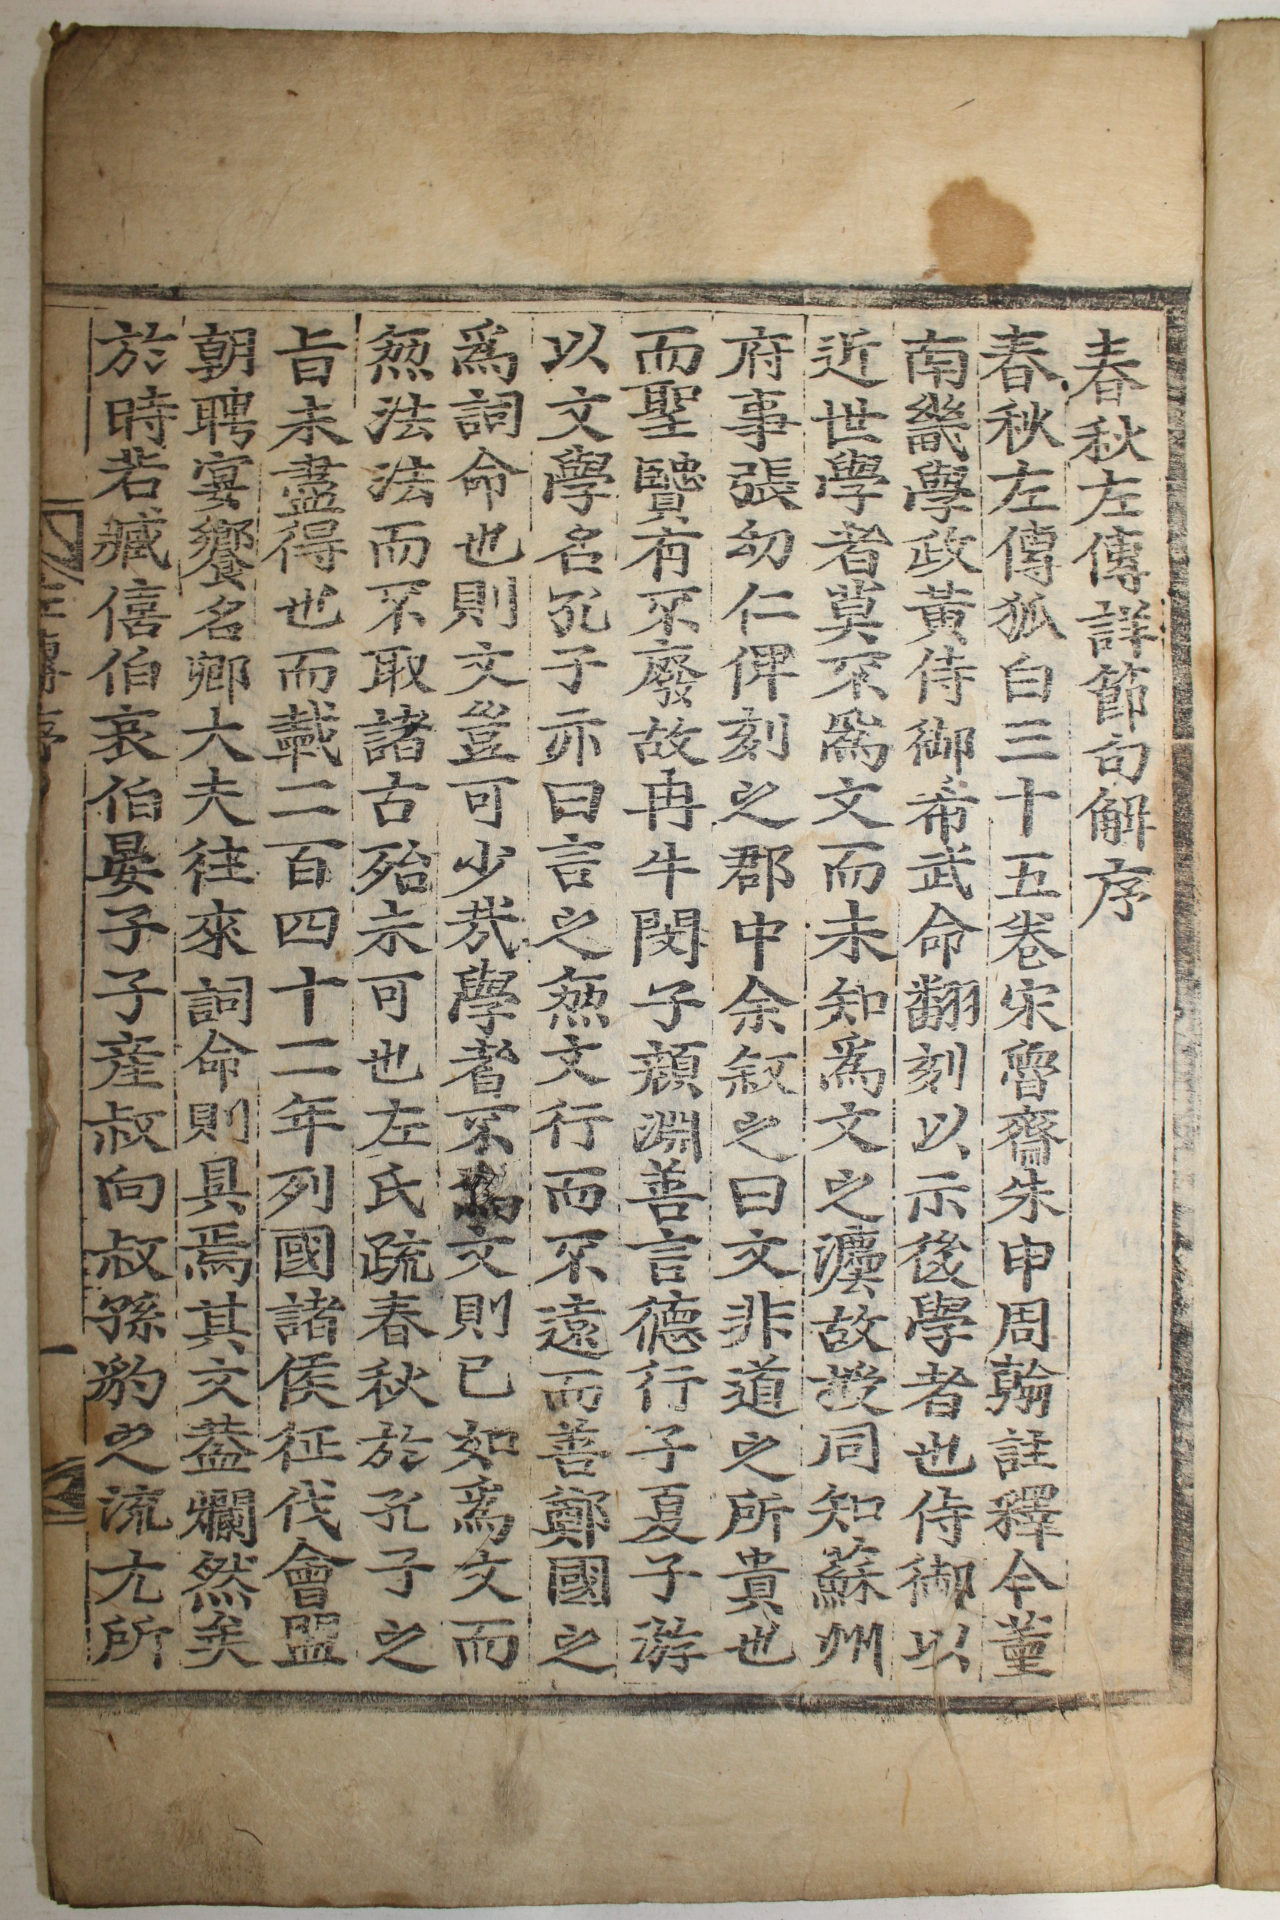 春秋左傳詳節句解序
春秋左傳狐白三十五卷宋魯齋朱申周翰註釋今董
南畿學政黃侍御希武命翻刻以示後學者也侍御以
近世學者莫不爲文而未知爲文之瀍故授同知蘇州
府事張幼仁俾刻之郡中余叙之曰文非道之所貴也
而聖賢有不廢故冉牛閔子顏淵善言德行子夏子游
以文學名孔子亦曰言之無文行而不遠而善鄭國之
爲詞命也則文豈可少哉學者不爲文則已如爲文而
無法法而不取諸古殆未可也左氏疏春秋於孔子之
旨未盡得也而載二百四十二年列國諸侯征伐會盟
朝聘宴饗名卿大夫往來詞命則具焉其文蓋爛然矣
於時若臧僖伯哀伯晏子子産叔向叔孫豹之流尤所
左傳序
一